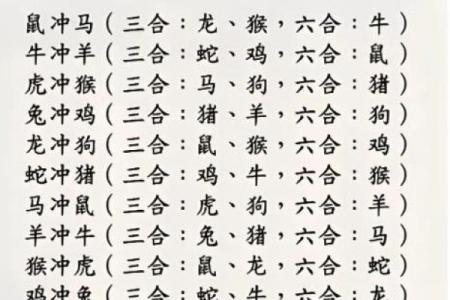 鼠冲马(三合:龙、猴,六合:牛)
牛冲羊(三合:蛇、鸡,六合:鼠)
虎冲猴(三合:马、狗,六合:猪)
兔冲鸡(三合:猪、羊,六合:狗)
龙冲狗(三合:鼠、猴,六合:鸡)
蛇冲猪(三合:鸡、牛,六合:猴)
马冲鼠(三合:虎、狗,六合:羊)
羊冲牛(三合:兔、猪,六合:马)
猴冲虎(三合:鼠、龙,六合:蛇)
鸡冲兔(三合:蛇、牛,六合:龙)